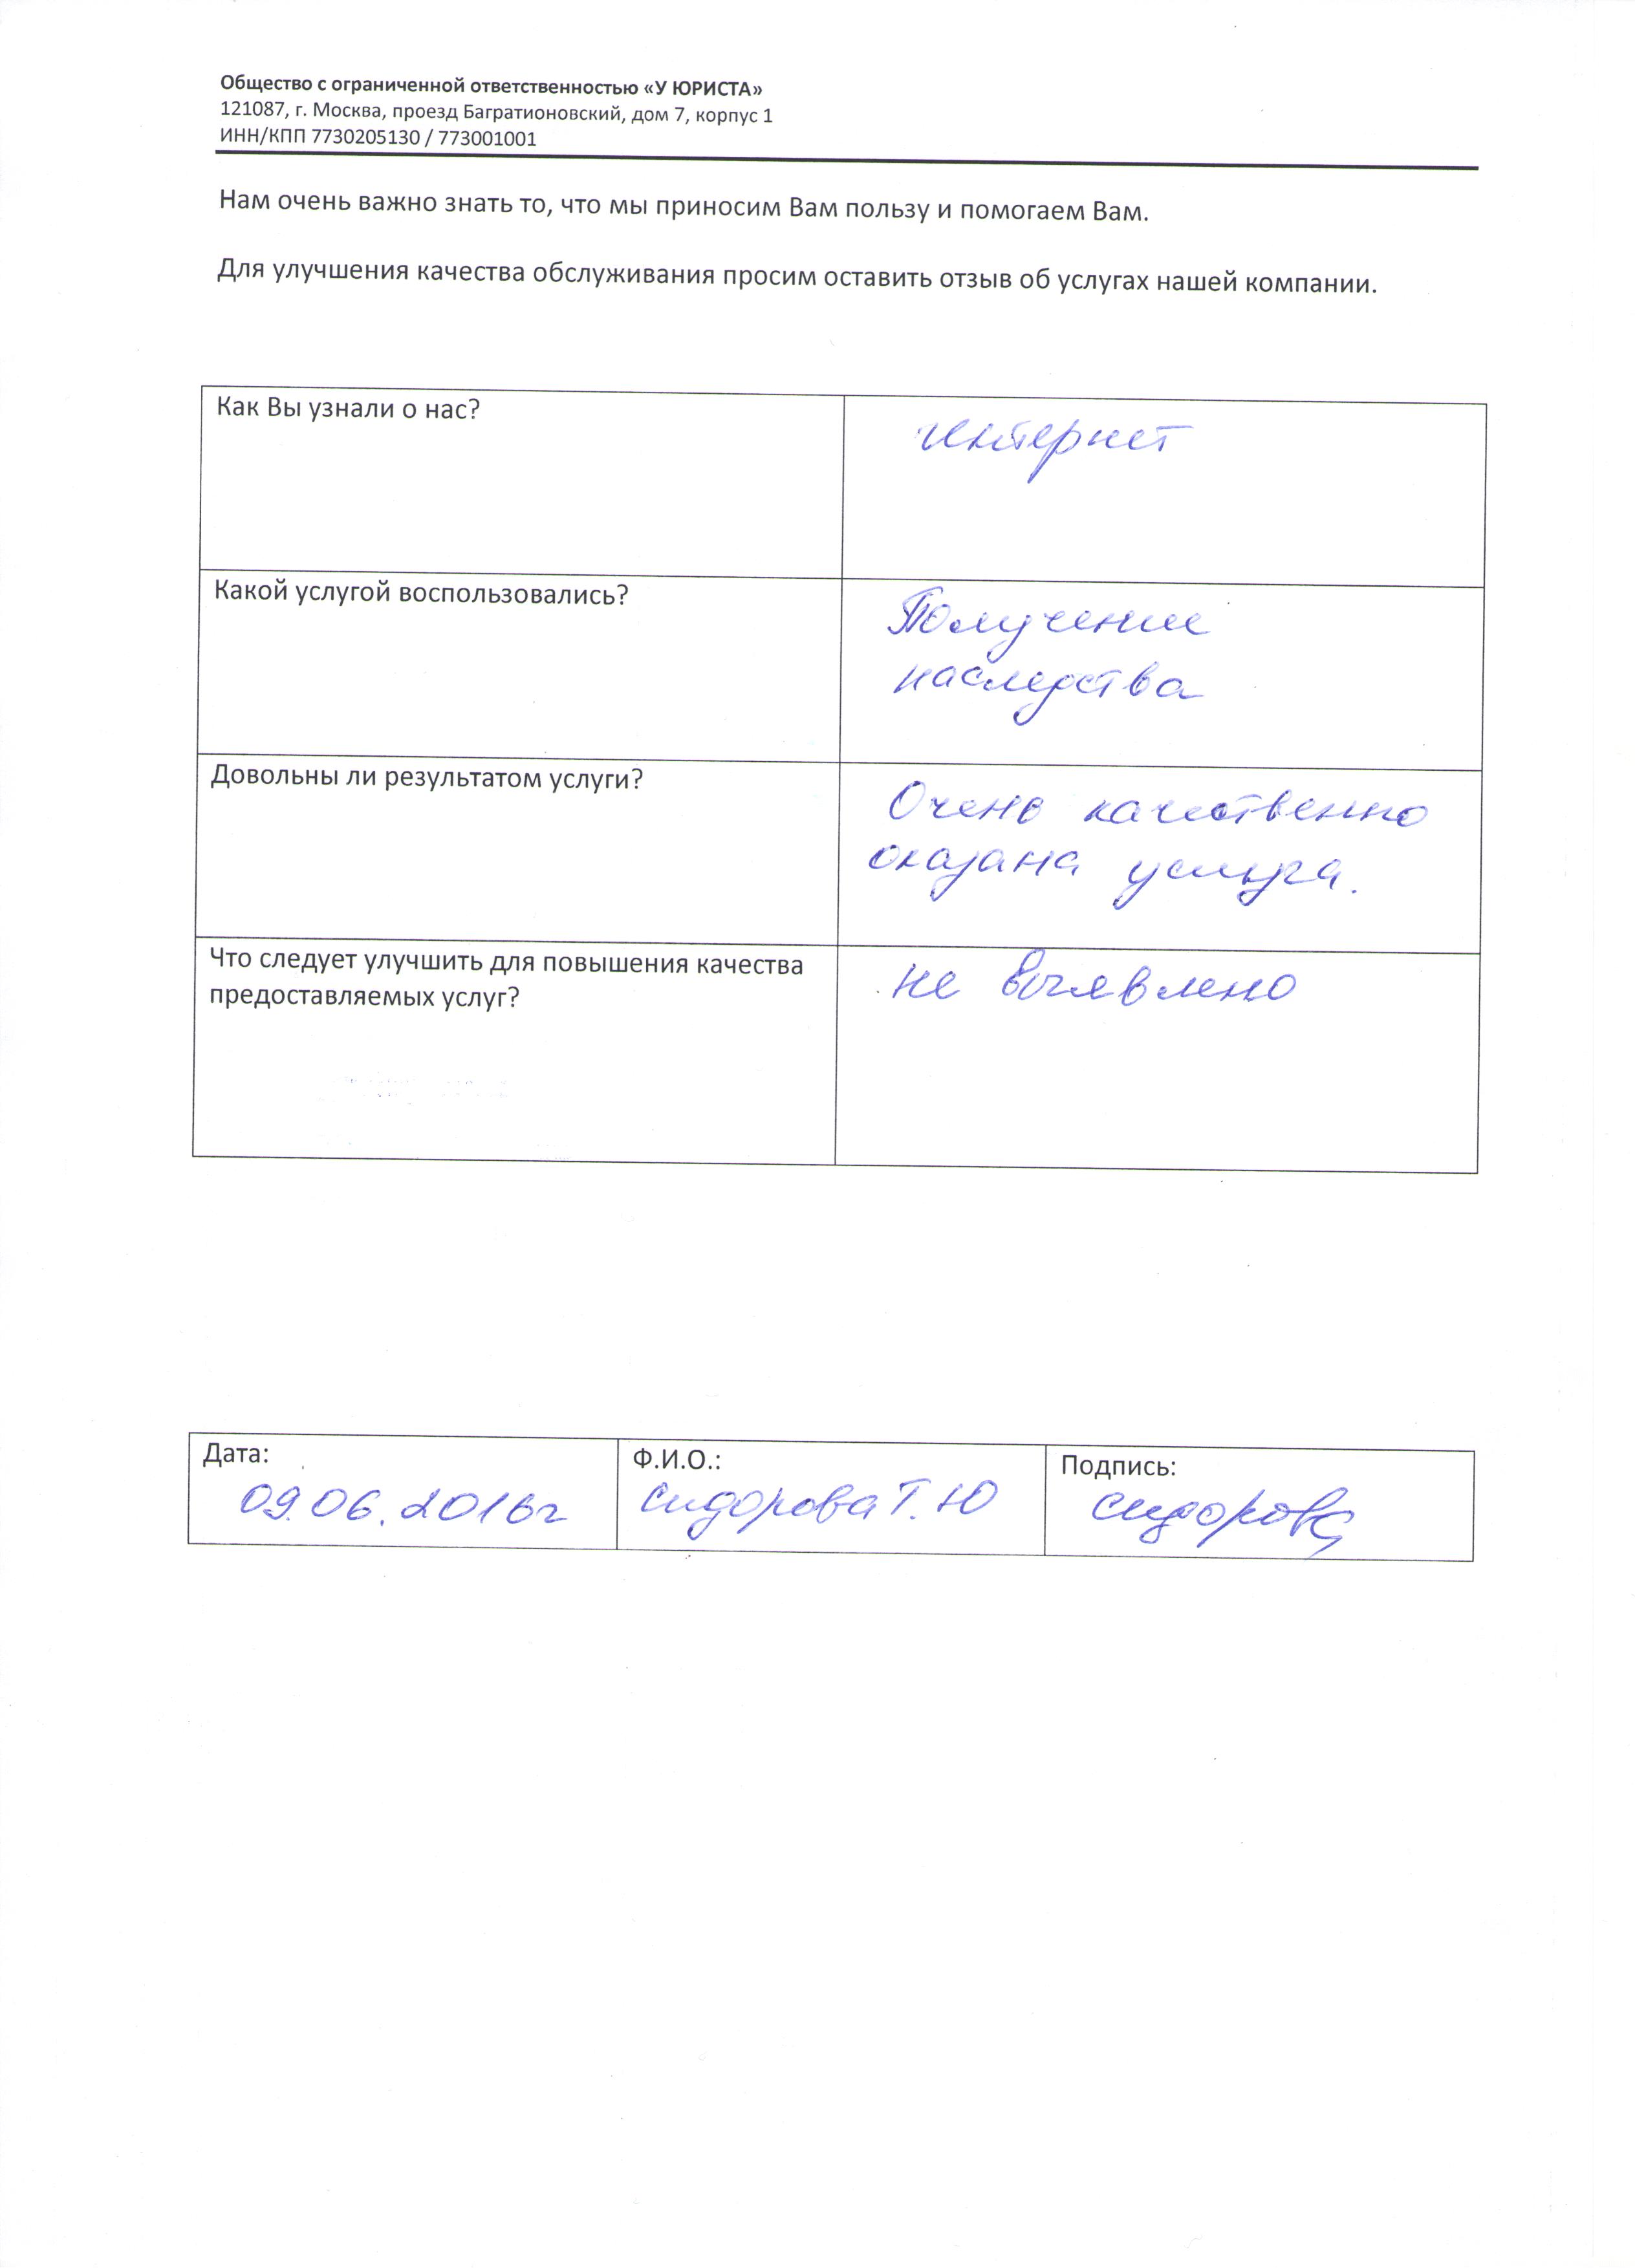 Общество с ограниченной ответственностью «У ЮРИСТА»
121087, г. Москва, проезд Багратионовский, дом 7, корпус 1
ИНН/КПП 7730205130 / 773001001
Нам очень важно знать то, что мы приносим Вам пользу и помогаем Вам.
Для улучшения качества обслуживания просим оставить отзыв об услугах нашей компании.
Как Вы узнали о нас?
Интернет
Какой услугой воспользовались?
Получение
наследства
Довольны ли результатом услуги?
Очень качественно
оказана услуга.
Что следует улучшить для повышения качества
предоставляемых услуг?
не выявлено
Дата:
09.06.2016г
Ф.И.О.:
Сидорова Т.Ю
Подпись:
Сидорова